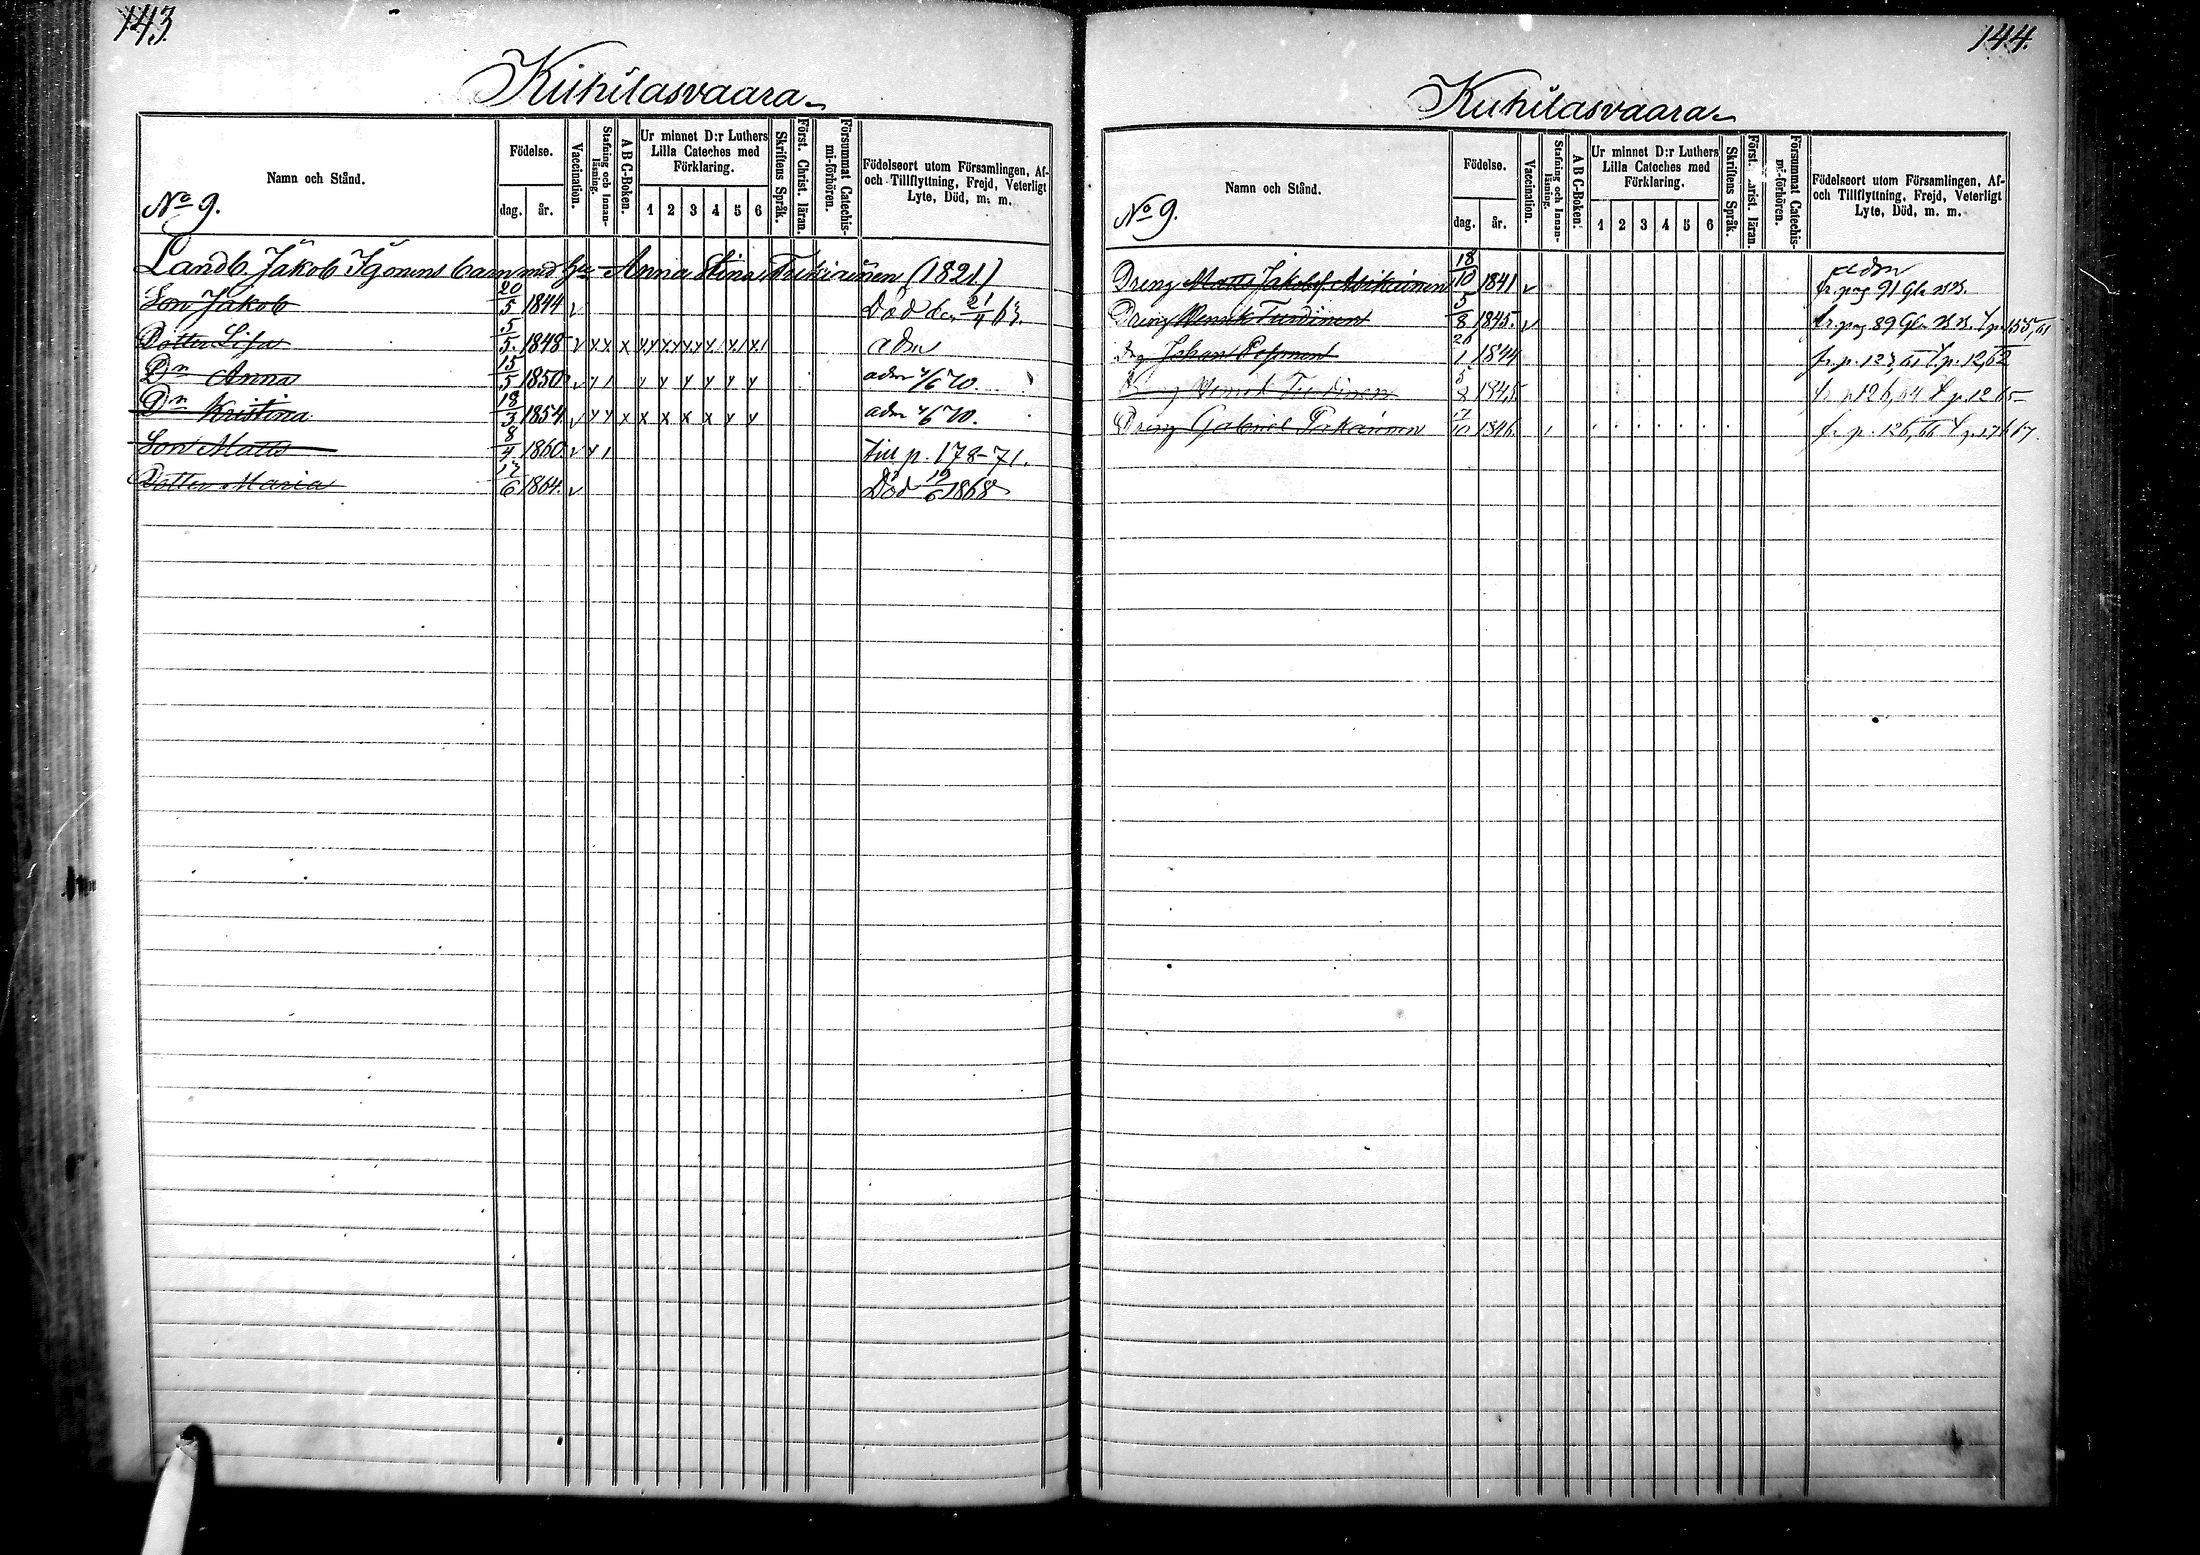 143.
Kuhilasvaara
No 9.
Namn och Stånd.
Födelse.
dag. år.
Vaccination.
Stafning och Innanläsning.
A B C-Boken.
Ur minnet D:r Luthers Lilla Cateches med Förklaring.
1 2 3 4 5 6
Skriftens Språk.
Först. Christ. läran.
Försummat Catechismi-förhören.
Födelseort utom Församlingen, Af- och Tillflyttning, Frejd, Veterligt Lyte, Död, m. m.
Landb. Jakob Igonens barn med Anna Stina (1821)
Son Jakob 20/5 1844 v Död den 21/4 63.
Dotter Lisa 5/5 1848 v adm
Dn Anna 15/5 1850 v adm 4/6 70.
Dn Kristina 18/3 1854. v adm 4/6 70.
Son Matts 8/4 1860. v Till p. 178-71.
Dotter Maria 12/6 1864. v Död 19/6 1868
144.
Kuhilasvaara
No 9.
Namn och Stånd.
Födelse.
dag. år.
Vaccination.
Stafning och Innanläsning.
A B C-Boken.
Ur minnet D:r Luthers Lilla Cateches med Förklaring.
1 2 3 4 5 6
Skriftens Språk.
Först. Christ. läran.
Försummat Catechismi-förhören.
Födelseort utom Församlingen, Af- och Tillflyttning, Frejd, Veterligt Lyte, Död, m. m.
adm
Dreng Matts Jakobsf 18/10 1841 v fr. pag 91 Gla
Dreng Henrik Turdinen 5/8 1845. v fr. pag 89 Gla
Johan 1844
Dreng Henrik Turdinen 5/8 1845
Dreng Gabriel 1846.